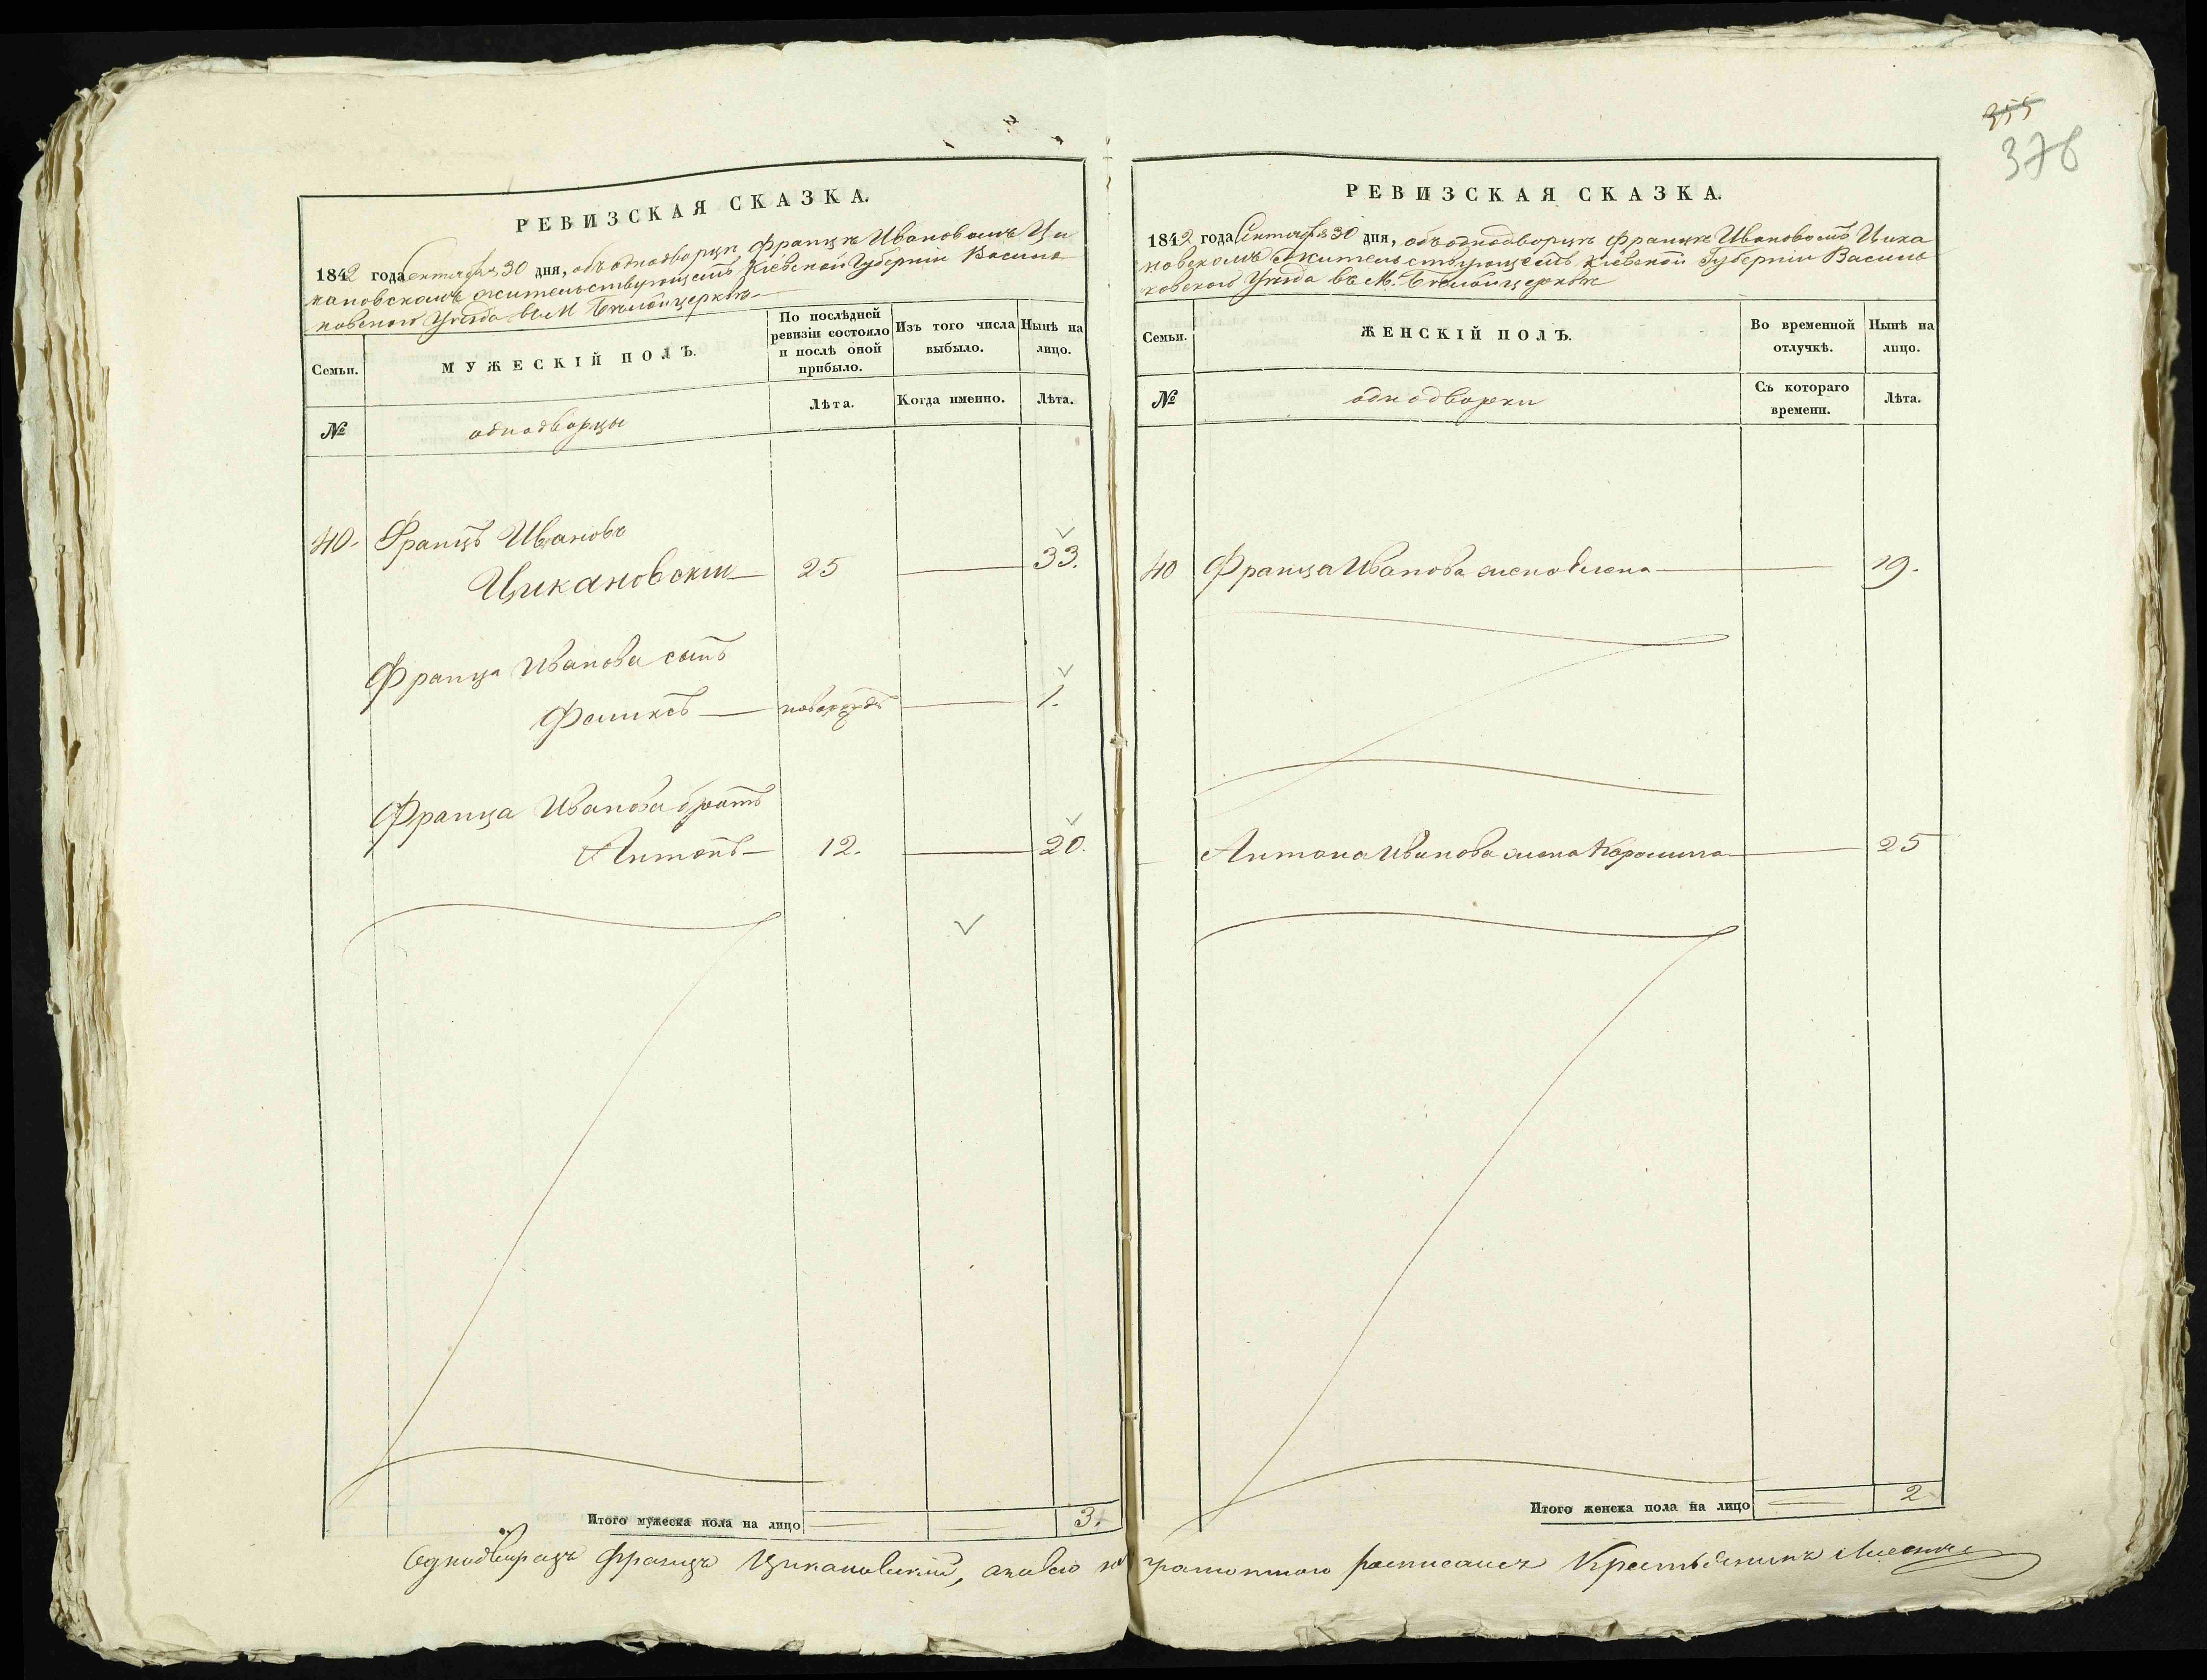 355
376
РЕВИЗСКАЯ СКАЗКА.
1842 года Сентября 30 дня, объ однодворцѣ Францѣ Ивановомъ Ци
кановскомъ жительствующемъ Кіевской Губерніи Василь
ковского Уѣзда въ М. Бѣлойцерквѣ
Семьи.
МУЖЕСКІЙ ПОЛЪ.
По послѣдней ревизіи состояло и послѣ оной прибыло.
Изъ того числа выбыло.
Нынѣ на лицо.
№
однодворцы
Лѣта.
Когда именно.
Лѣта.
40. Францъ Ивановъ
Цикановскій 25 33.
Франца Иванова сынъ
Феликсъ новорожд 1.
Франца Иванова братъ
Антонъ 12. 20.
Итого мужеска пола на лицо 3.
РЕВИЗСКАЯ СКАЗКА.
1842 года Сентября 30 дня, объ однодворцѣ Францѣ Ивановомъ Цика
новскомъ жительствующемъ Кіевской Губерніи Василь
ковского Уѣзда въ М. Бѣлойцерквѣ
Семьи.
ЖЕНСКІЙ ПОЛЪ.
Во временной отлучкѣ.
Нынѣ на лицо.
№
однодворки
Съ котораго времени.
Лѣта.
40 Франца Иванова жена Елена 19.
Антона Иванова жена Каролина 25
Итого женска пола на лицо 2
Однодворецъ Францъ Цикановский, а по его не грамотною росписался Крестьянинъ